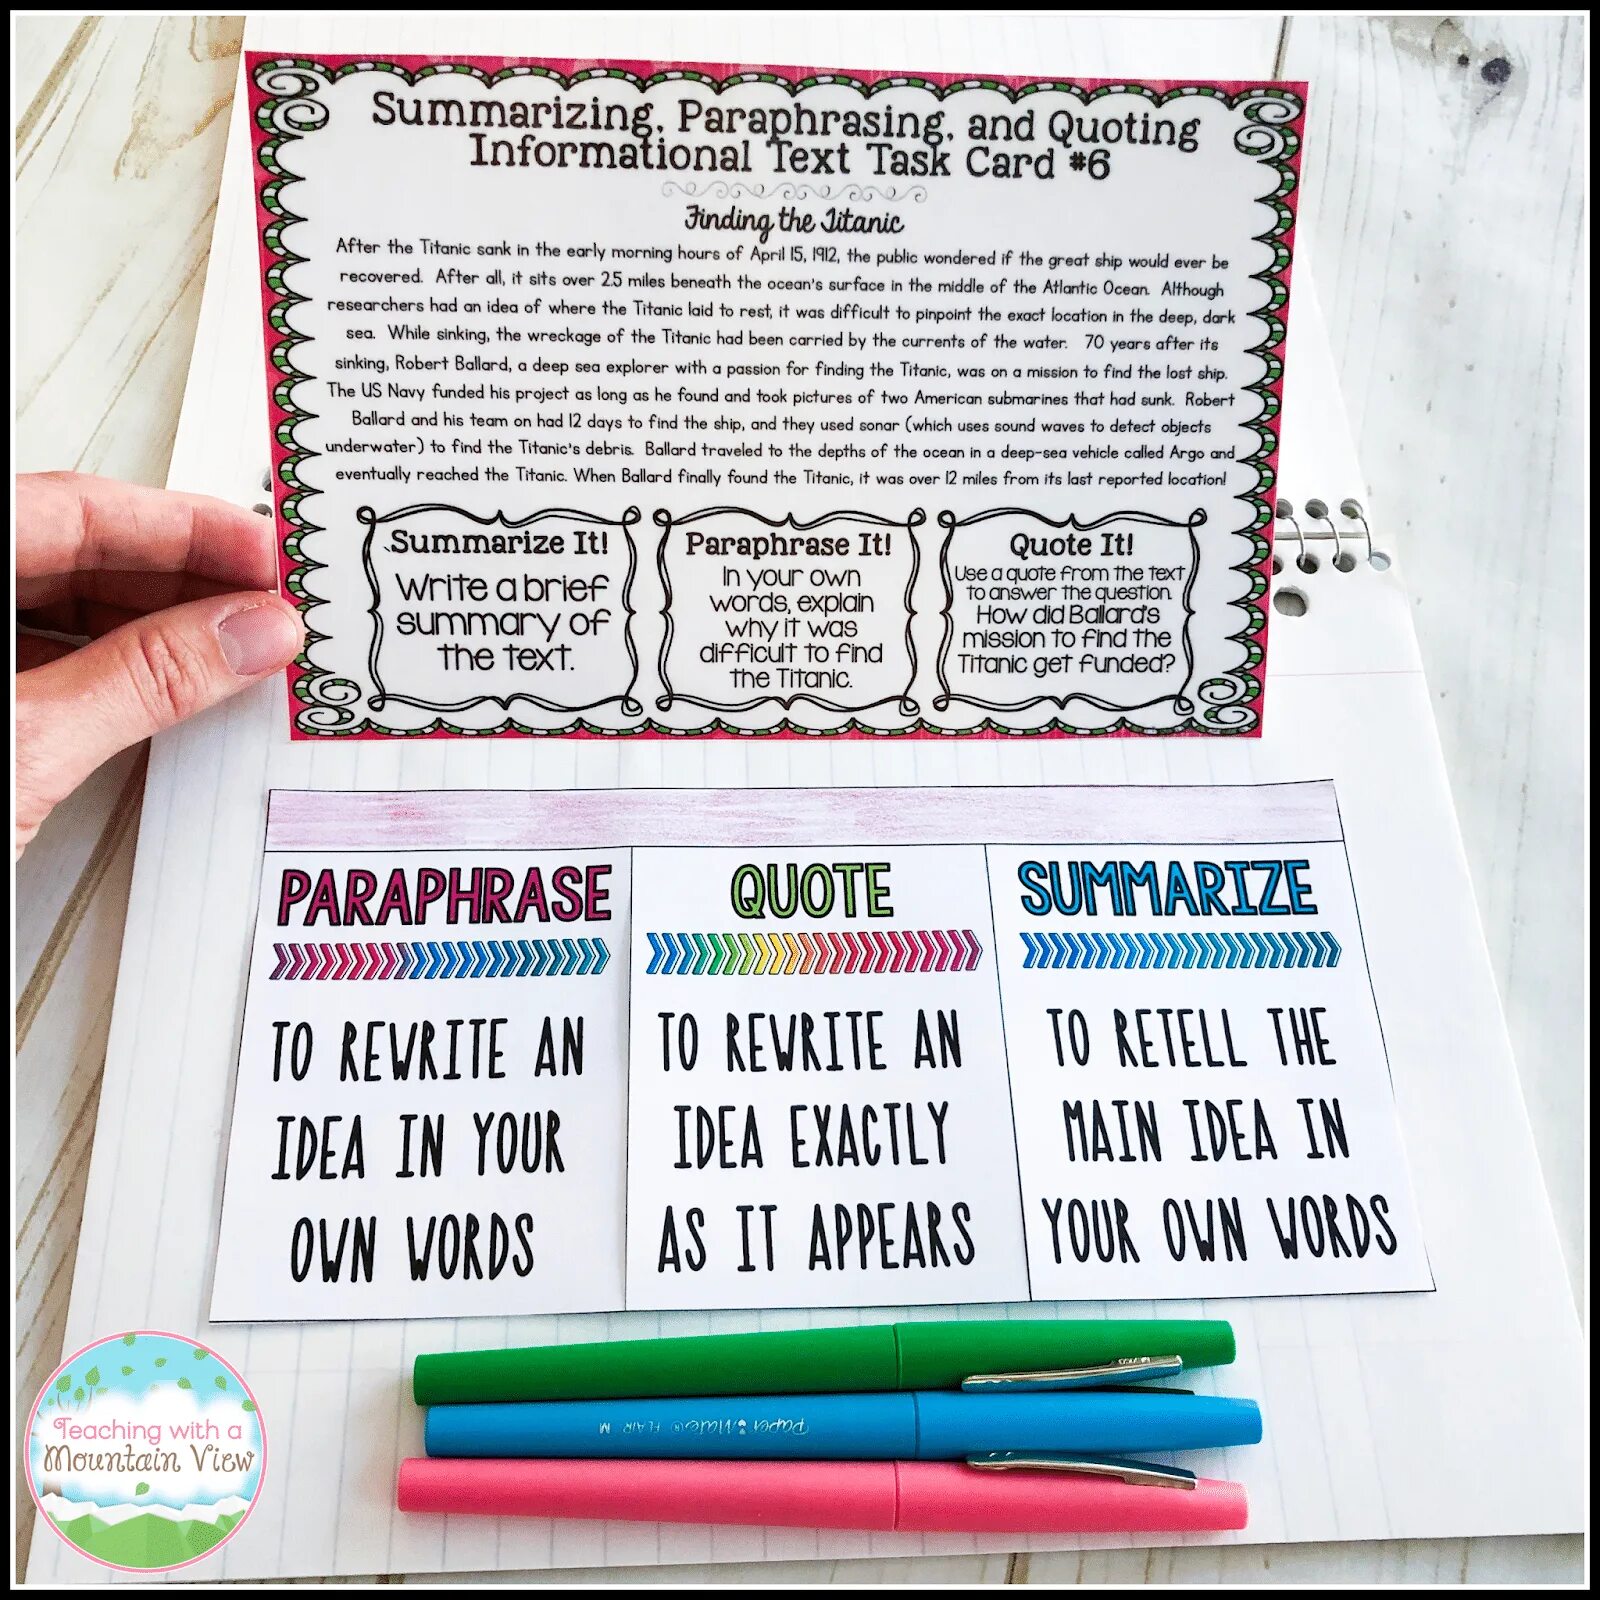 Summarizing, Paraphrasing, and Quoting
Informational Text Task Card #6
Finding the Titanic
After the Titanic sank in the early morning hours of April 15, 1912, the public wondered if the great ship would ever be
recovered. After all, it sits over 2.5 miles beneath the ocean's surface in the middle of the Atlantic Ocean. Although
researchers had an idea of where the Titanic laid to rest, it was difficult to pinpoint the exact location in the deep, dark
sea. While sinking, the wreckage of the Titanic had been carried by the currents of the water. 70 years after its
sinking, Robert Ballard, a deep sea explorer with a passion for finding the Titanic, was on a mission to find the lost ship.
The US Navy funded his project as long as he found and took pictures of two American submarines that had sunk. Robert
Ballard and his team on had 12 days to find the ship, and they used sonar (which uses sound waves to detect objects
underwater) to find the Titanic's debris. Ballard traveled to the depths of the ocean in a deep-sea vehicle called Argo and
eventually reached the Titanic. When Ballard finally found the Titanic, it was over 12 miles from its last reported location!
Summarize It!
Write a brief
summary of
the text.
Paraphrase It!
In your own
words, explain
why it was
difficult to find
the Titanic.
Quote It!
Use a quote from the text
to answer the question.
How did Ballard's
mission to find the
Titanic get funded?
PARAPHRASE
TO REWRITE AN
IDEA IN YOUR
OWN WORDS
QUOTE
TO REWRITE AN
IDEA EXACTLY
AS IT APPEARS
SUMMARIZE
TO RETELL THE
MAIN IDEA IN
YOUR OWN WORDS
Paper Mate® FLAIR M
Teaching with a
Mountain View